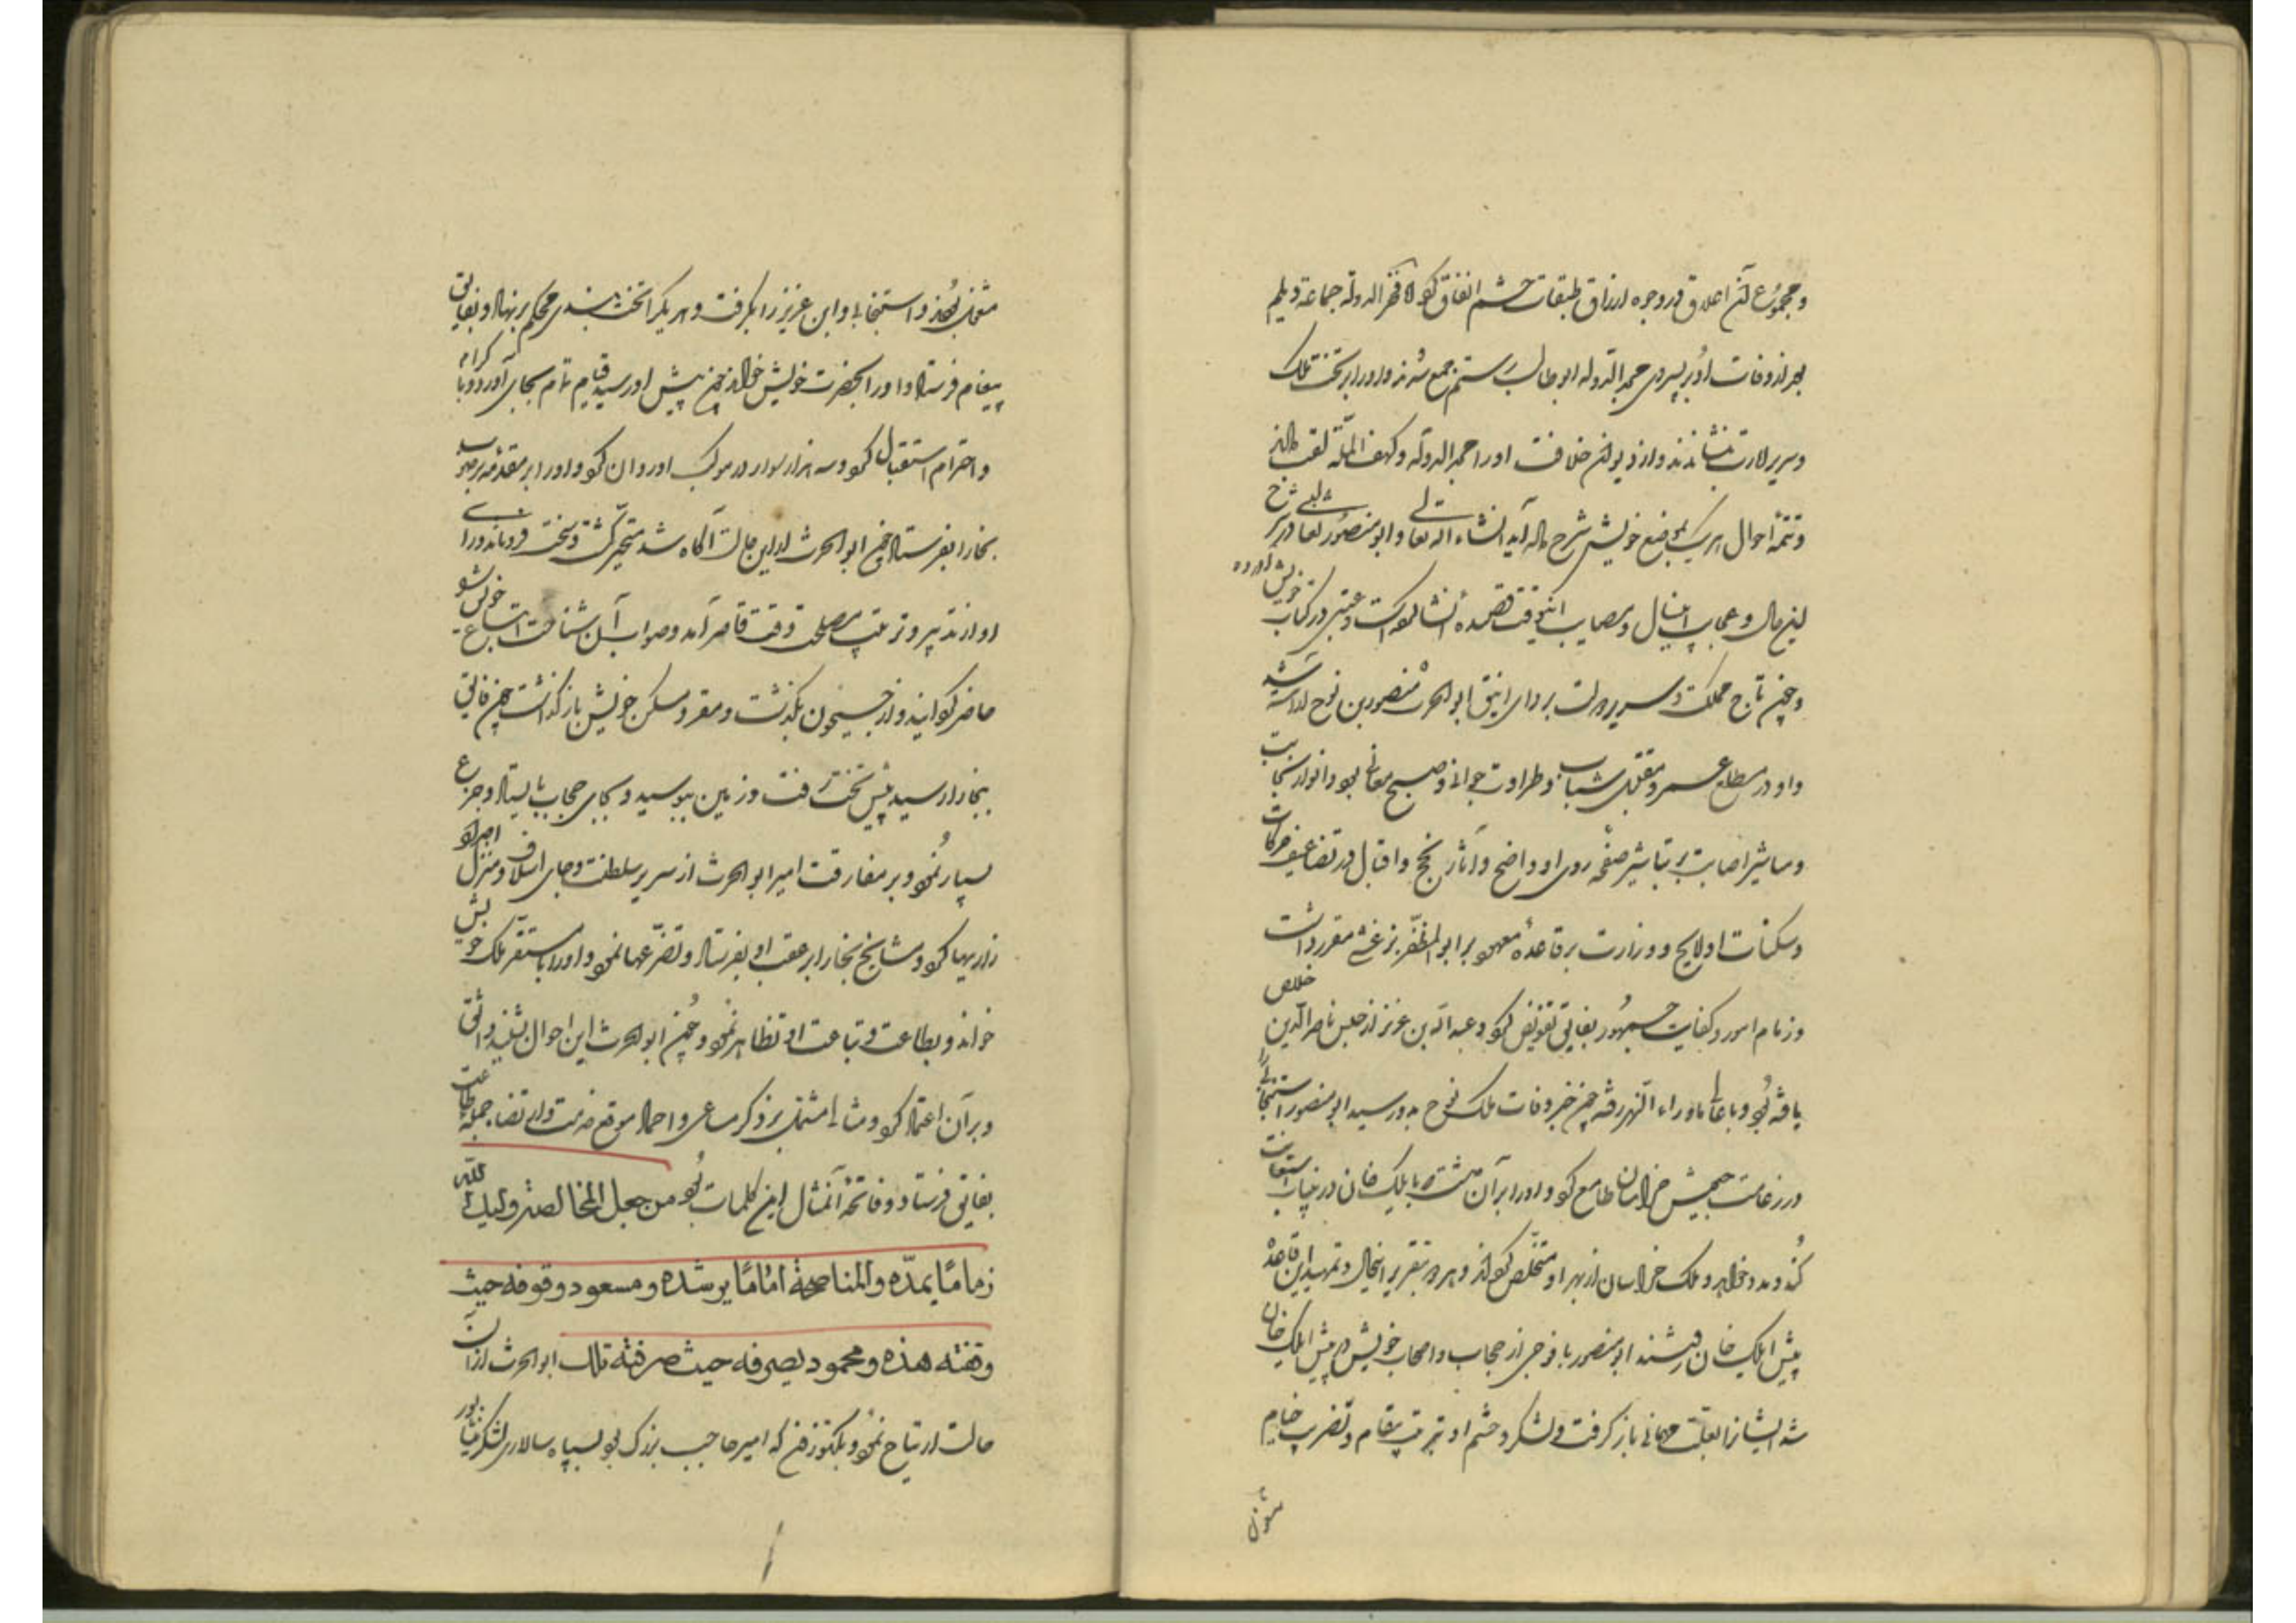 و مجموع آن اعلاق در وجوه ارزاق طبقات حشم انفاق کرد و فخر الدوله جماعة دیلم
بعد از وفات او بر پسر وی مجد الدوله ابو طالب رستم جمع شدند و او را بر تخت ملک
و سریر امارت بنشاندند و از دیوان خلافت او را مجد الدوله و کهف المله لقب دادند
و تتمه احوال هر یک بموضع خویش شرح داده آید انشاء الله تعالی و ابو منصور ثعالبی در شرح
این حال و عجایب امثال و مصایب این وقت قصیده انشا کرده است و عتبی در کتاب خویش آورده
و چون تاج مملکت و سریر دولت بردای انیق ابو الحرث منصور بن نوح آراسته شد
و او در مطلع عمر و مقتبل شباب و طراوت جوانی و صبح معانی بود و انوار نجابت
و مباشیر اصابت بر تباشیر صفحه روی او واضح و آثار نجح و اقبال در تضاعیف حرکات
و سکنات او لایح و وزارت بر قاعده معهود بر ابو المظفر برغشی مقرر داشت
و زمام امور و کفایت جمهور بفایق تفویض کرد و عبد الله بن عزیز از حبس ناصر الدین خلاص
یافته بود و باعالی ماوراء النهر رفته چون خبر وفات ملک نوح بدو رسید ابو منصور اسبیجابی را
در زعامت جیش خراسان طامع کرد و او را بر آن داشت که بایلک خان در نیابت استعانت
کند و مدد خواهد و ملک خراسان از بهر او مستخلص گرداند و هر دو بتقریر این حال و تمهید این قاعده
پیش ایلک خان رفتند ابو منصور با فوجی از حجاب و اصحاب خویش در پیش ایلک خان
شد ایشان را بعلت مهمانی باز گرفت و لشکر و حشم او بترتیب مقام و تضریب خیام
مشغول
مشغول بودند و اسبیجابی و ابن عزیز را بگرفت و هر یک را تخت بندی محکم بر نهاد و بفایق
پیغام فرستاد و او را بحضرت خویش خواند چون پیش او رسید قیام تمام بجای آورد و با کرام
و احترام استقبال کرد و سه هزار سوار در موکب او روان کرد و او را بر مقدمه بر صوب
بخارا بفرستاد چون ابو الحرث از این حالت آگاه شد متحیر گشت و سخت فروماند و رای
او از تدبیر و ترتیب مصلحت وقت قاصر آمد و صواب آن شناخت که اشیاع خویش
حاضر گردانید و از جیحون بگذشت و مقر و مسکن خویش باز گذاشت چون فایق
ببخارا رسید پیش تخت رفت و زمین ببوسید و بجای حجاب بایستاد و جزع
بسیار نمود و بر مفارقت امیر ابو الحرث از سریر سلطنت و جای اسلاف و منزل اجداد
زاریها کرد و مشایخ بخارا بر عقب او بفرستاد و تضرعها نمود و او را با مستقر ملک خویش
خواند و بطاعت و تباعت او تظاهر نمود و چون ابو الحرث این احوال بشنید واثق
و بر آن اعتماد کرد و مثالی مشتمل بر ذکر مساعی و احماد موقع خدمت و ارتضاء جمله طاعت
بفایق فرستاد و فاتحه آن مثال این کلمات بود من جعل المخالصة ولیک الله
زمامًا یمدّه والمناصحة امامًا یرشده ومسعود وقوفه حیث
وقفته هذه ومحمود یصرفه حیث صرفته تلک ابو الحرث از آن
حالت ارتیاح نمود و بکتوزن که امیر حاجب بزرگ بود بسپاه سالاری لشکر نیشابور